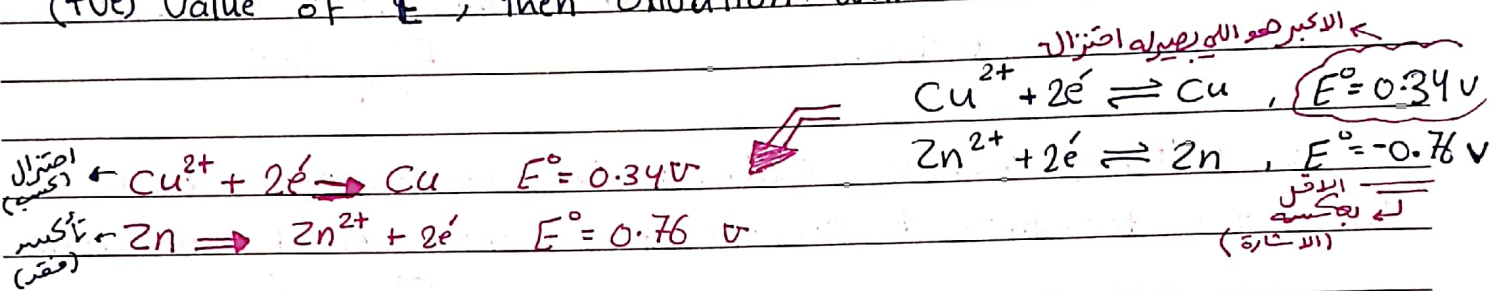 (+ve) value of E, then
← الاكبر هو اللي بصيرله اختزال
Cu²⁺ + 2é ⇌ Cu , E° = 0.34 v
Zn²⁺ + 2é ⇌ Zn , E° = -0.76 v
الاقل
بعكسه
(الاشارة)
اختزال ← Cu²⁺ + 2é → Cu E° = 0.34 v
(كسب)
تأكسد ← Zn ⇒ Zn²⁺ + 2é E° = 0.76 v
(فقد)